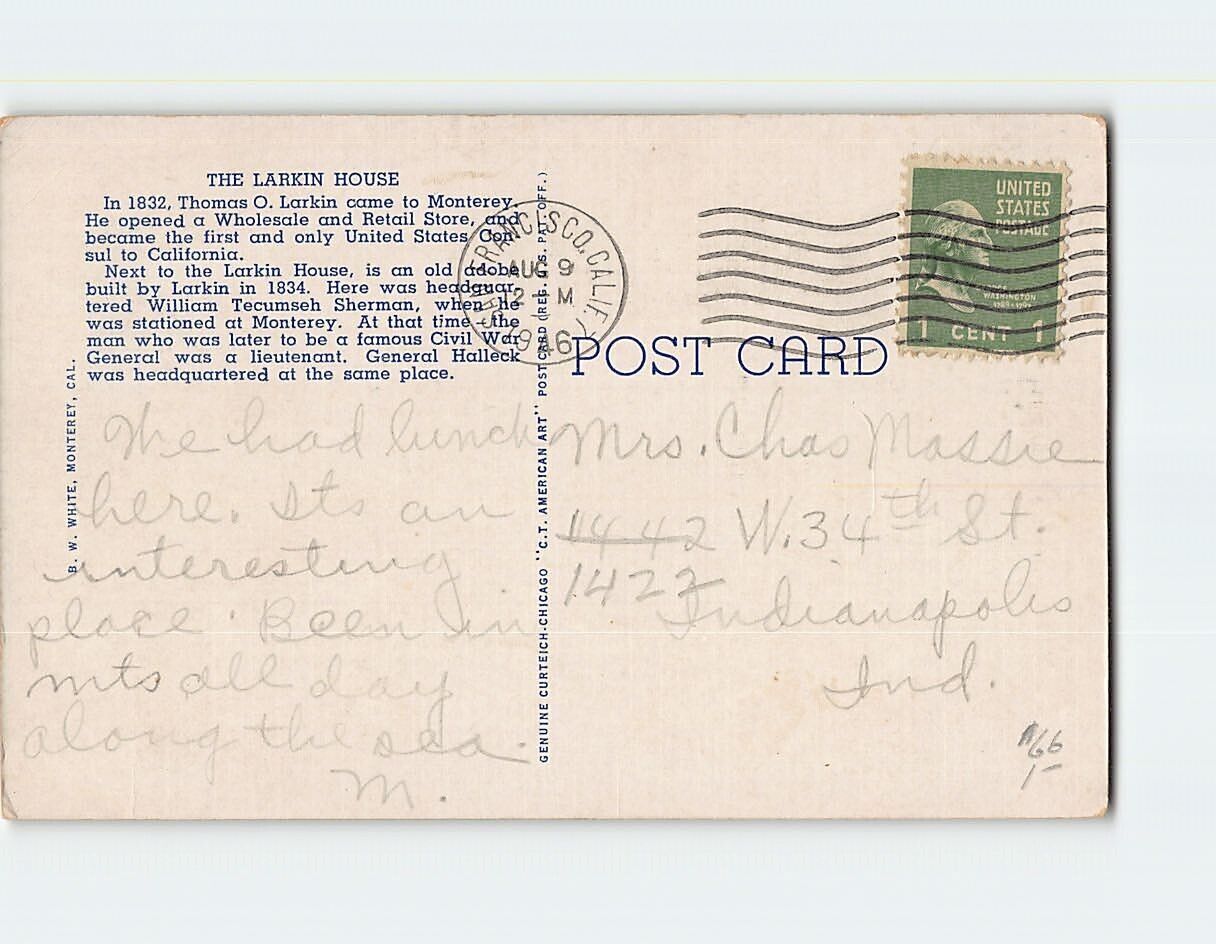 THE LARKIN HOUSE
In 1832, Thomas O. Larkin came to Monterey.
He opened a Wholesale and Retail Store, and
became the first and only United States Con-
sul to California.
Next to the Larkin House, is an old adobe
built by Larkin in 1834. Here was headquar-
tered William Tecumseh Sherman, when he
was stationed at Monterey. At that time the
man who was later to be a famous Civil War
General was a lieutenant. General Halleck
was headquartered at the same place.
B. W. WHITE, MONTEREY, CAL.
We had lunch
here. Its an
interesting
place. Been in
mts all day
along the sea.
M.
GENUINE CURTEICH-CHICAGO "C.T. AMERICAN ART" POST CARD (REG. U.S. PAT. OFF.)
SAN FRANCISCO, CALIF.
AUG 9
12 M
1946
UNITED
STATES
POSTAGE
WASHINGTON
1789-1797
1 CENT 1
POST CARD
Mrs. Chas Massie
1442 W. 34th St.
1422
Indianapolis
Ind.